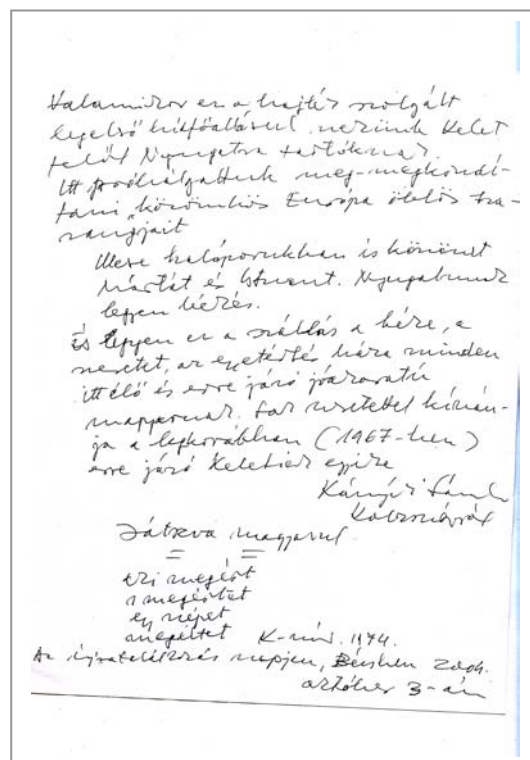 Valamikor ez a hajlék szolgált
legelső hídfőállásul nekünk Kelet
felől Nyugatra tartóknak.
Itt próbálgattuk meg-megkondí-
tani közömbös Európa öblös ha-
rangjait
Illesse haló porukban is köszönet
Mártát és Istvánt. Nyugalmuk
legyen békés.
És legyen ez a szállás a béke, a
szeretet, az egyetértés háza minden
itt élő és erre járó jóakaratú
magyarnak. Sok szeretettel kíván-
ja a legkorábban (1967-ben)
erre járó Keletiek egyike
Kányádi Sándor
Kolozsvárról
Játszva magyarul
ki megért
s megértet
egy népet
megéltet K-vár. 1974.
Az újratalálkozás napján, Bécsben 2004.
október 3-án